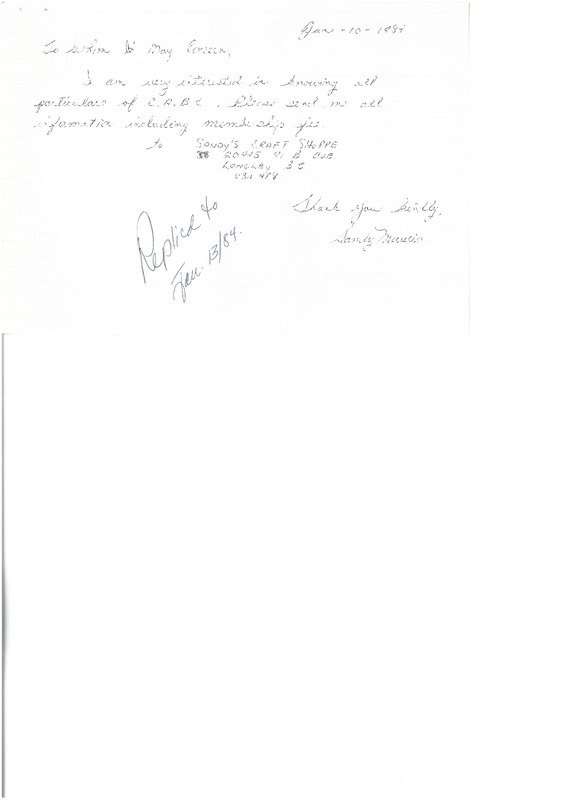 Jan - 10 - 1984
To whom it May Concern,
I am very interested in knowing all
particulars of C.A.B.C. Please send me all
information including membership fee.
to SANDY'S CRAFT SHOPPE
B AVE
LANGLEY BC
V3A 4P8
Thank you kindly,
Sandy
Replied to
Jan. 13/84.